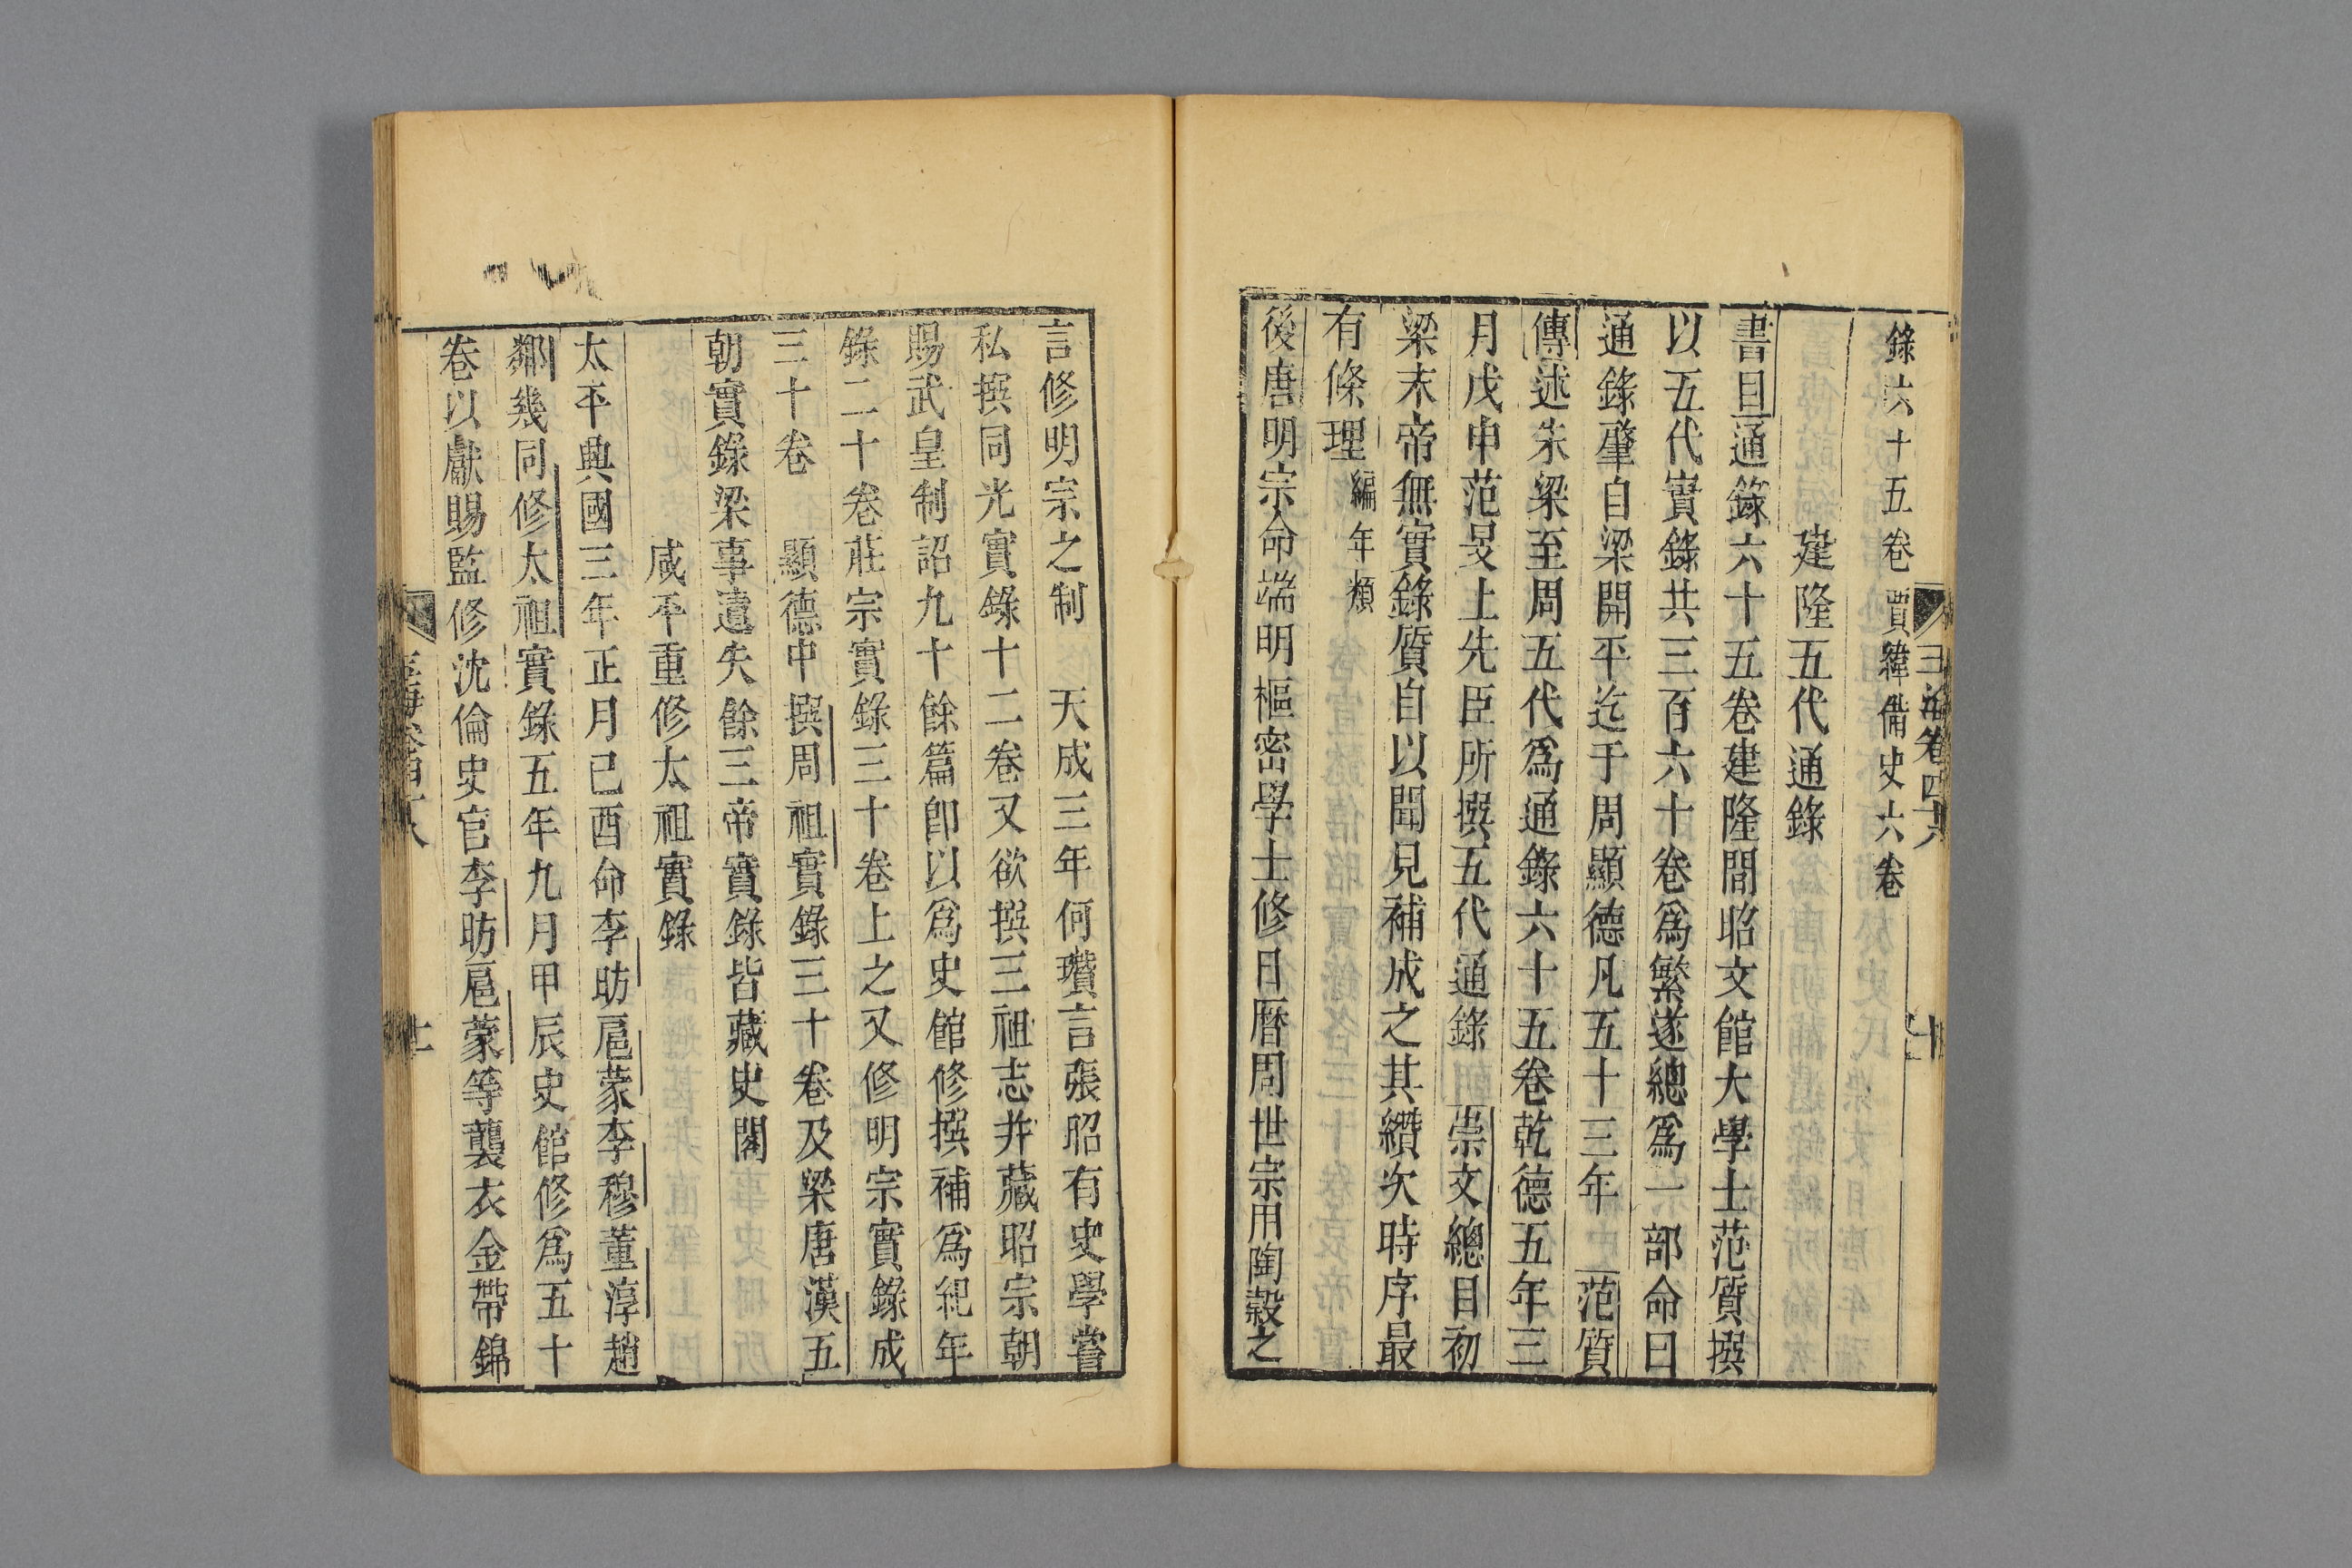 錄六十五卷 賈緯備史六卷
建隆五代通錄
書目通錄六十五卷建隆間昭文館大學士范質撰
以五代實錄共三百六十卷爲繁遂總爲一部命曰
通錄肇自梁開平迄于周顯德凡五十三年 范質
傳述朱梁至周五代爲通錄六十五卷乾德五年三
月戊申范旻上先臣所撰五代通錄 崇文總目初
梁末帝無實錄質自以聞見補成之其纘次時序最
有條理編年類
後唐明宗命端明樞密學士修日曆周世宗用陶穀之
言修明宗之制 天成三年何瓚言張昭有史學嘗
私撰同光實錄十二卷又欲撰三祖志并藏昭宗朝
賜武皇制詔九十餘篇卽以爲史館修撰補爲紀年
錄二十卷莊宗實錄三十卷上之又修明宗實錄成
三十卷 顯德中撰周祖實錄三十卷及梁唐漢五
朝實錄梁事遺失餘三帝實錄皆藏史閣
咸平重修太祖實錄
太平興國三年正月己酉命李昉扈蒙李穆董淳趙
鄰幾同修太祖實錄五年九月甲辰史館修爲五十
卷以獻賜監修沈倫史官李昉扈蒙等襲衣金帶錦